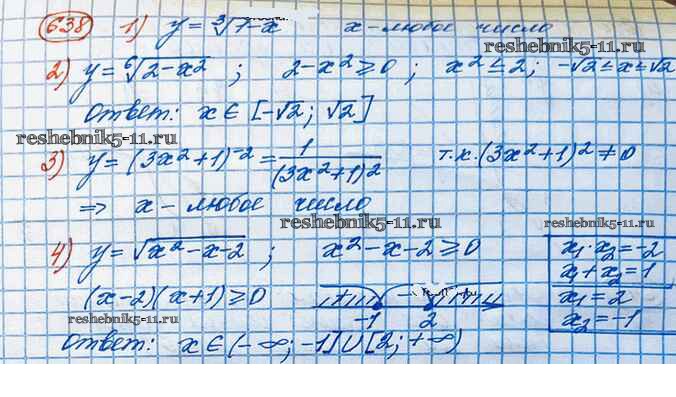 638 1) y = ∛7-x x - любое число
reshebnik5-11.ru
2) y = ⁶√2-x² ; 2-x² ≥ 0 ; x² ≤ 2 ; -√2 ≤ x ≤ √2
Ответ: x ∈ [-√2 ; √2]
reshebnik5-11.ru
3) y = (3x²+1)⁻² = 1/(3x²+1)² т.к. (3x²+1)² ≠ 0
⇒ x - любое число
reshebnik5-11.ru
reshebnik5-11.ru
4) y = √x²-x-2 ; x²-x-2 ≥ 0
x₁·x₂ = -2
x₁+x₂ = 1
(x-2)(x+1) ≥ 0 + - + -1 2
x₁ = 2
x₂ = -1
reshebnik5-11.ru
reshebnik5-11.ru
Ответ: x ∈ (-∞ ; -1] ∪ [2 ; +∞)